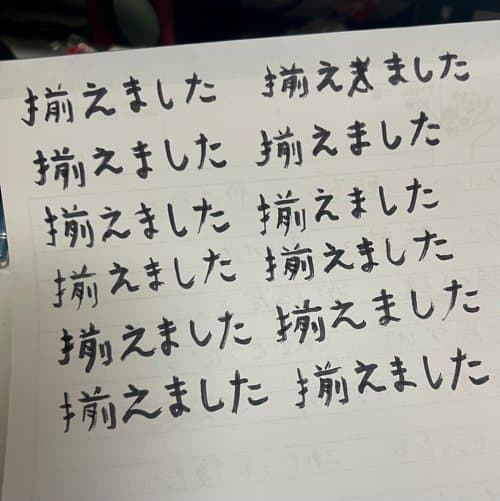 揃えました 揃えましました
揃えました 揃えました
揃えました 揃えました
揃えました 揃えました
揃えました 揃えました
揃えました 揃えました